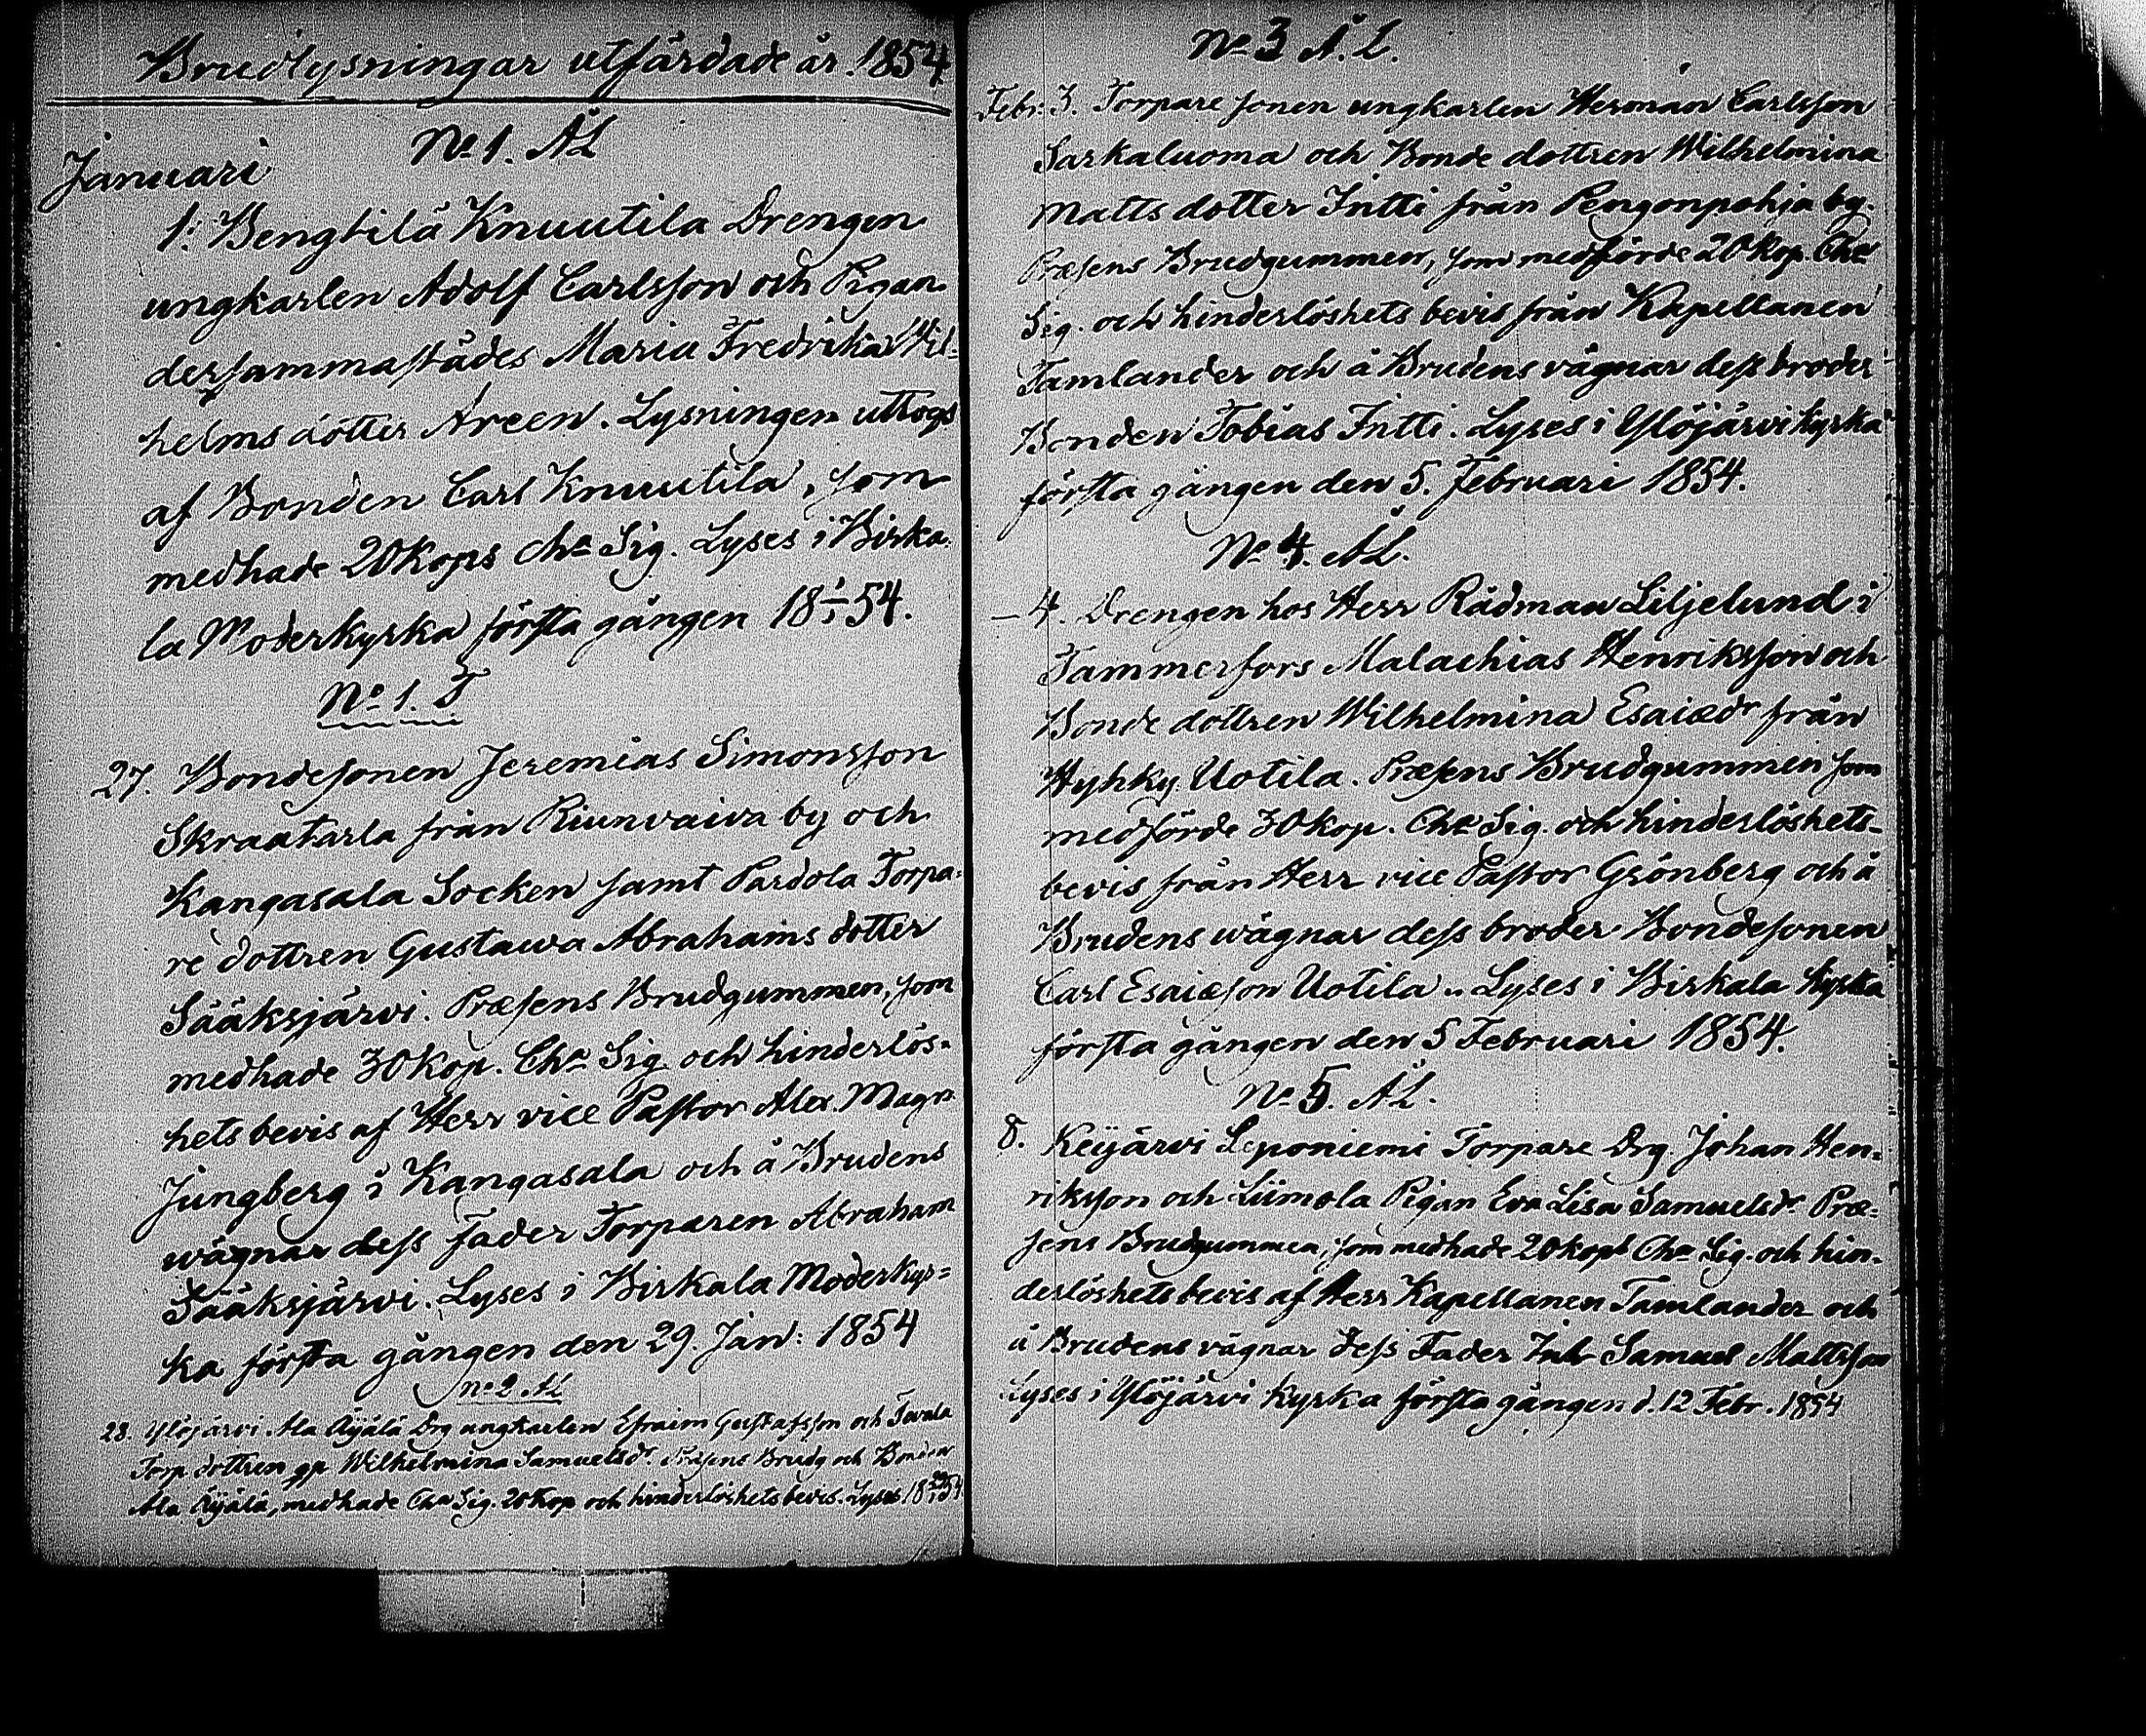 Brudlysningar utfärdade år 1854
No 1. ÄL
Januari
1. Bengtilä Knuutila Drengen
ungkarlen Adolf Carlsson och Pigan
dersammastädes Maria Fredrika Wil-
helms dotter Areen. Lysningen uttogs
af Bonden Carl Knuutila, som
medhade 20 kops Cha Sig. Lyses i Birka-
la Moderkyrka första gången 18 1/1 54.
No 1. T
27. Bondesonen Jeremias Simonsson
Skraatarla från Riunvaiva by och
Kangasala Socken samt Pardola Torpa-
re dottren Gustawa Abrahams dotter
Sääksjärvi. Præsens Brudgummen, som
medhade 30 kop. Cha Sig och hinderlös-
hets bevis af Herr vice Pastor Alex. Magn.
Jungberg i Kangasala och å Brudens
wägnar dess fader Torparen Abraham
Sääksjärvi. Lyses i Birkala Moderkyr-
ka första gången den 29. Jan: 1854
No 2 ÄL
28. Ylöjärvi Ala Äijälä Drg ungkarlen Efraim Gustafsson och
Torp dottren Wilhelmina Samuelsdr. Præsens Brudg och Bonden
Ala Äijälä, medhade Cha Sig. 20 Kop och hinderlöshets bevis. Lyses
No 3 Ä.L.
Febr. 3. Torpare sonen ungkarlen Herman Carlsson
Sarkaluoma och Bonde dottren Wilhelmina
Matts dotter Intti från Pengonpohja by.
Præsens Brudgummen, som medförde 20 kop. Cha
Sig. och hinderlöshets bevis från Kapellanen
Tamlander och å Brudens vägnar dess broder
Bonden Tobias Intti. Lyses i Ylöjärvi kyrka
första gången den 5. Februari 1854.
No 4. ÄL.
– 4. Drengen hos Herr Rådman Liljelund i
Tammerfors Malachias Henriksson och
Bonde dottren Wilhelmina Esaiædr från
Hyhky Uotila. Præsens Brudgummen som
medförde 30 kop. Cha Sig. och hinderlöshets-
bevis från Herr vice Pastor Grönberg och å
Brudens wägnar dess broder Bondesonen
Carl Esaiæson Uotila. Lyses i Birkala Kyrka
första gången den 5 Februari 1854.
No 5. ÄL.
8. Keijärvi Leponiemi Torpare Drg. Johan Hen-
riksson och Liimola Pigan Eva Lisa Samuelsdr Præ-
sens Brudgummen, som medhade 20 kops Cha Sig. och hin-
derlöshets bevis af Herr Kapellanen Tamlander och
å Brudens vägnar dess Fader Inh Samuel Mattsson
Lyses i Ylöjärvi Kyrka första gången d. 12 Febr. 1854